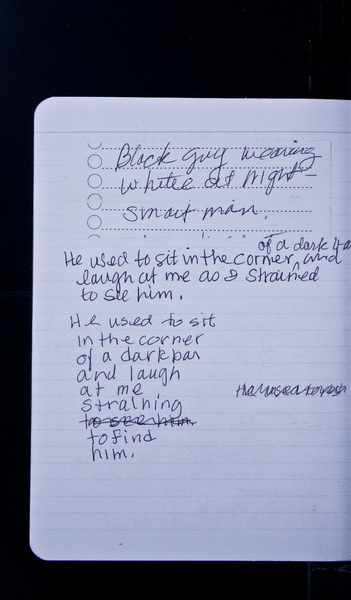 Black guy wearing
white at Night –
Smart man.
of a dark
He used to sit in the corner, and
laugh at me as I strained
to see him.
He used to sit
in the corner
of a dark bar
and laugh
at me
straining
to see him.
to find
him.